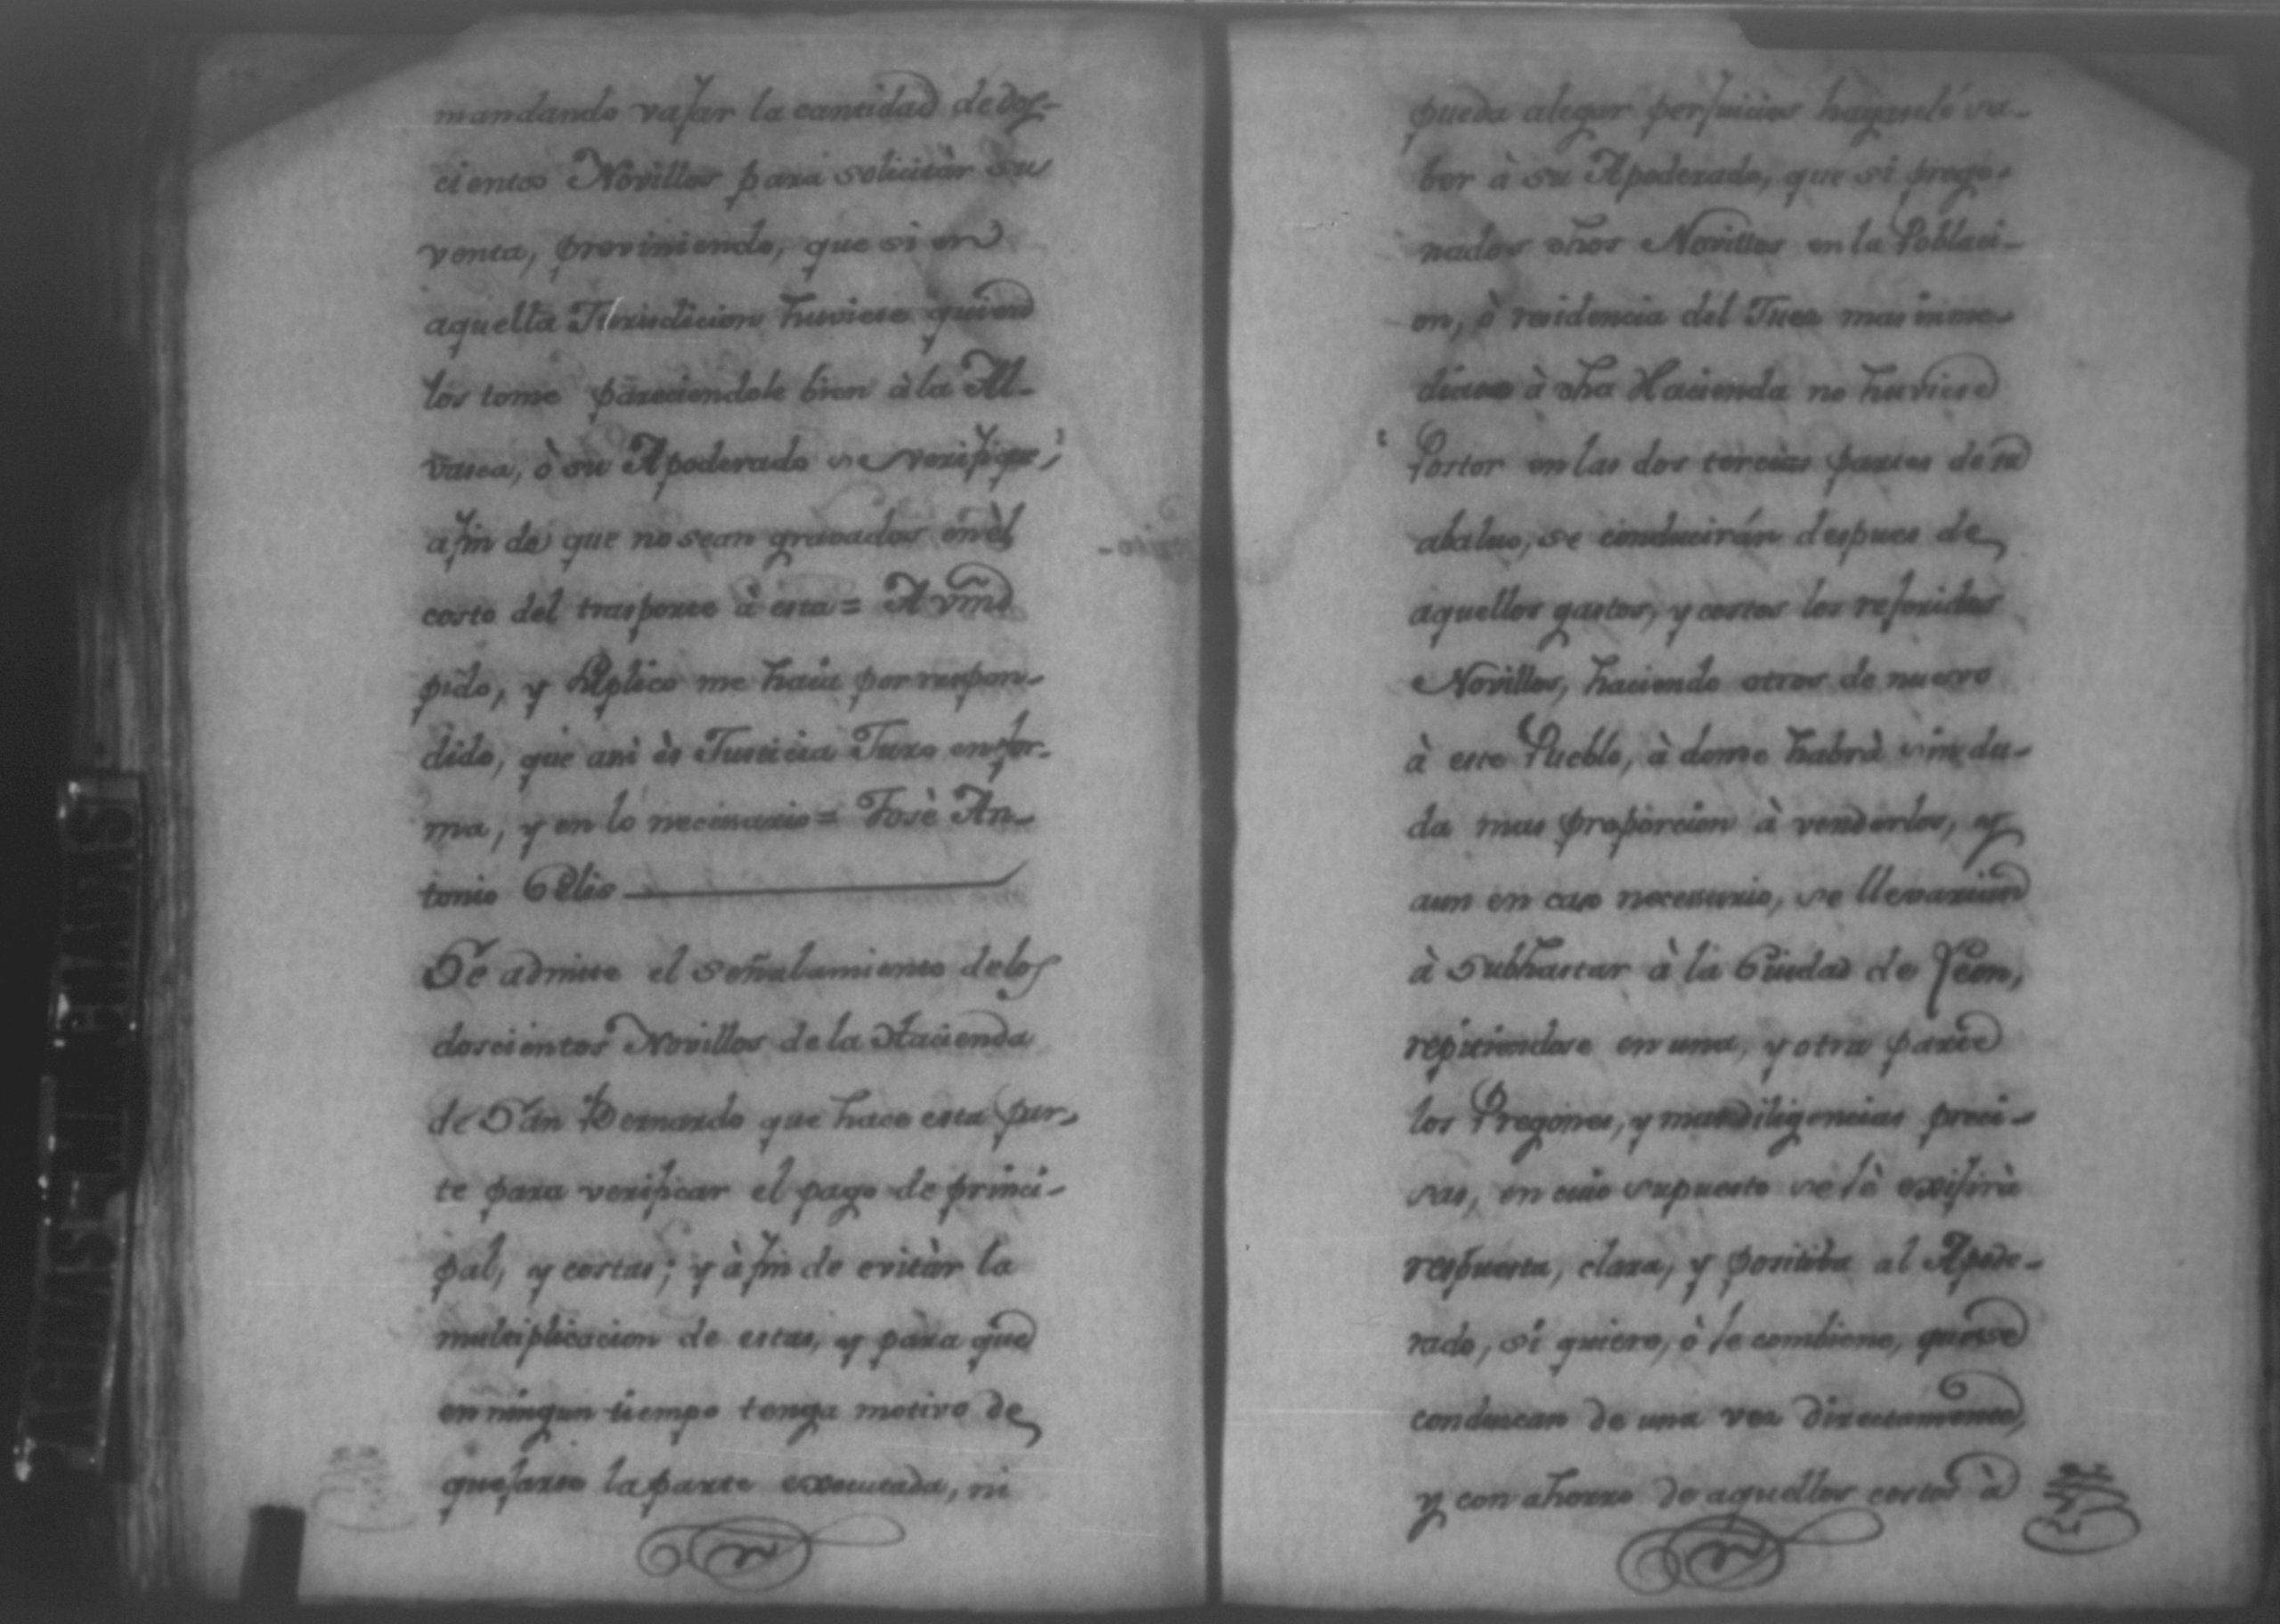 mandando vajar la cantidad de dos-
cientos Novillos para solicitàr su
venta, previniendo, que si en
aquella Jurisdicion huviese quien
los tome pareciendole bien à la Al-
vasea, ò su Apoderado se verifique,
afin de que no sean gravados en èl
costo del trasporte à esta = A vmd
pido, y suplico me haia por respon-
dido, que asi ès Justicia Juro en for-
ma, y en lo necesario = Josè An-
tonio Celis
Se admite el señalamiento delos
doscientos Novillos de la Hacienda
de San Bernardo que hace esta par-
te para verificar el pago de princi-
pal, y costas; y à fin de evitàr la
multiplicacion de estas, y para que
en ningun tiempo tenga motivo de
quejarse la parte executada, ni
pueda alegar perjuicios hagasele sa-
ber à su Apoderado, que si prego-
nados dhos Novillos en la Poblaci-
on, ò residencia del Juez mas inme-
diato à dha Hacienda no huviese
Postor en las dos tercias partes de su
abaluo, se conducirán despues de
aquellos gastos, y costos los referidos
Novillos, haciendo otros de nuevo
à este Pueblo, à donde habrà sin du-
da mas proporcion à venderlos, y
aun en caso necesario, se llevarian
à Subhastar à la Ciudad de Leon,
repitiendose en una, y otra parte
los Pregones, y mas diligencias preci-
sas, en cuio supuesto se lè exijirà
respuesta, clara, y positiba al Apode-
rado, si quiere, ò le combiene, que se
conduzcan de una vez directamente,
y con ahorro de aquellos costos à